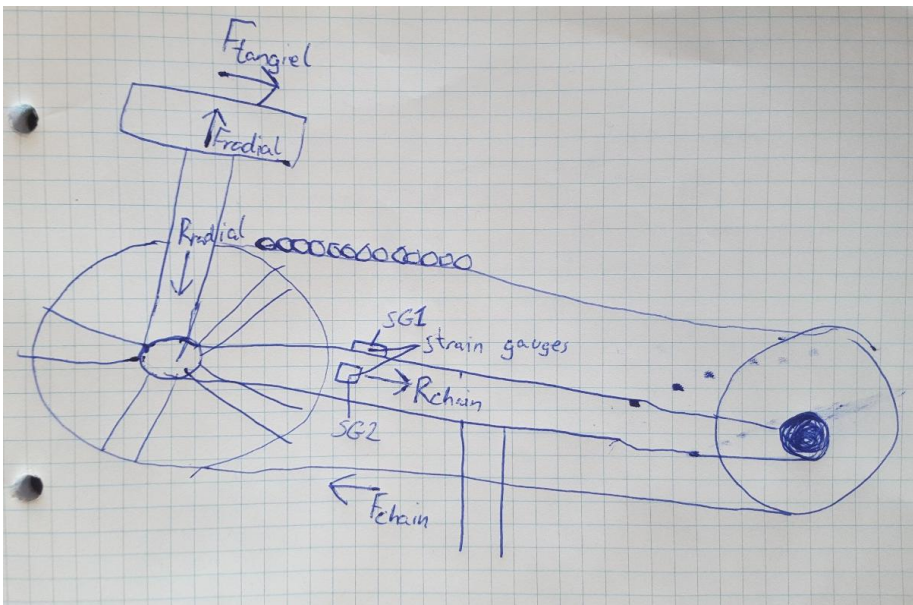 Ftangiel
Fradial
Rradial
SG1
strain gauges
Rchain
SG2
Fchain